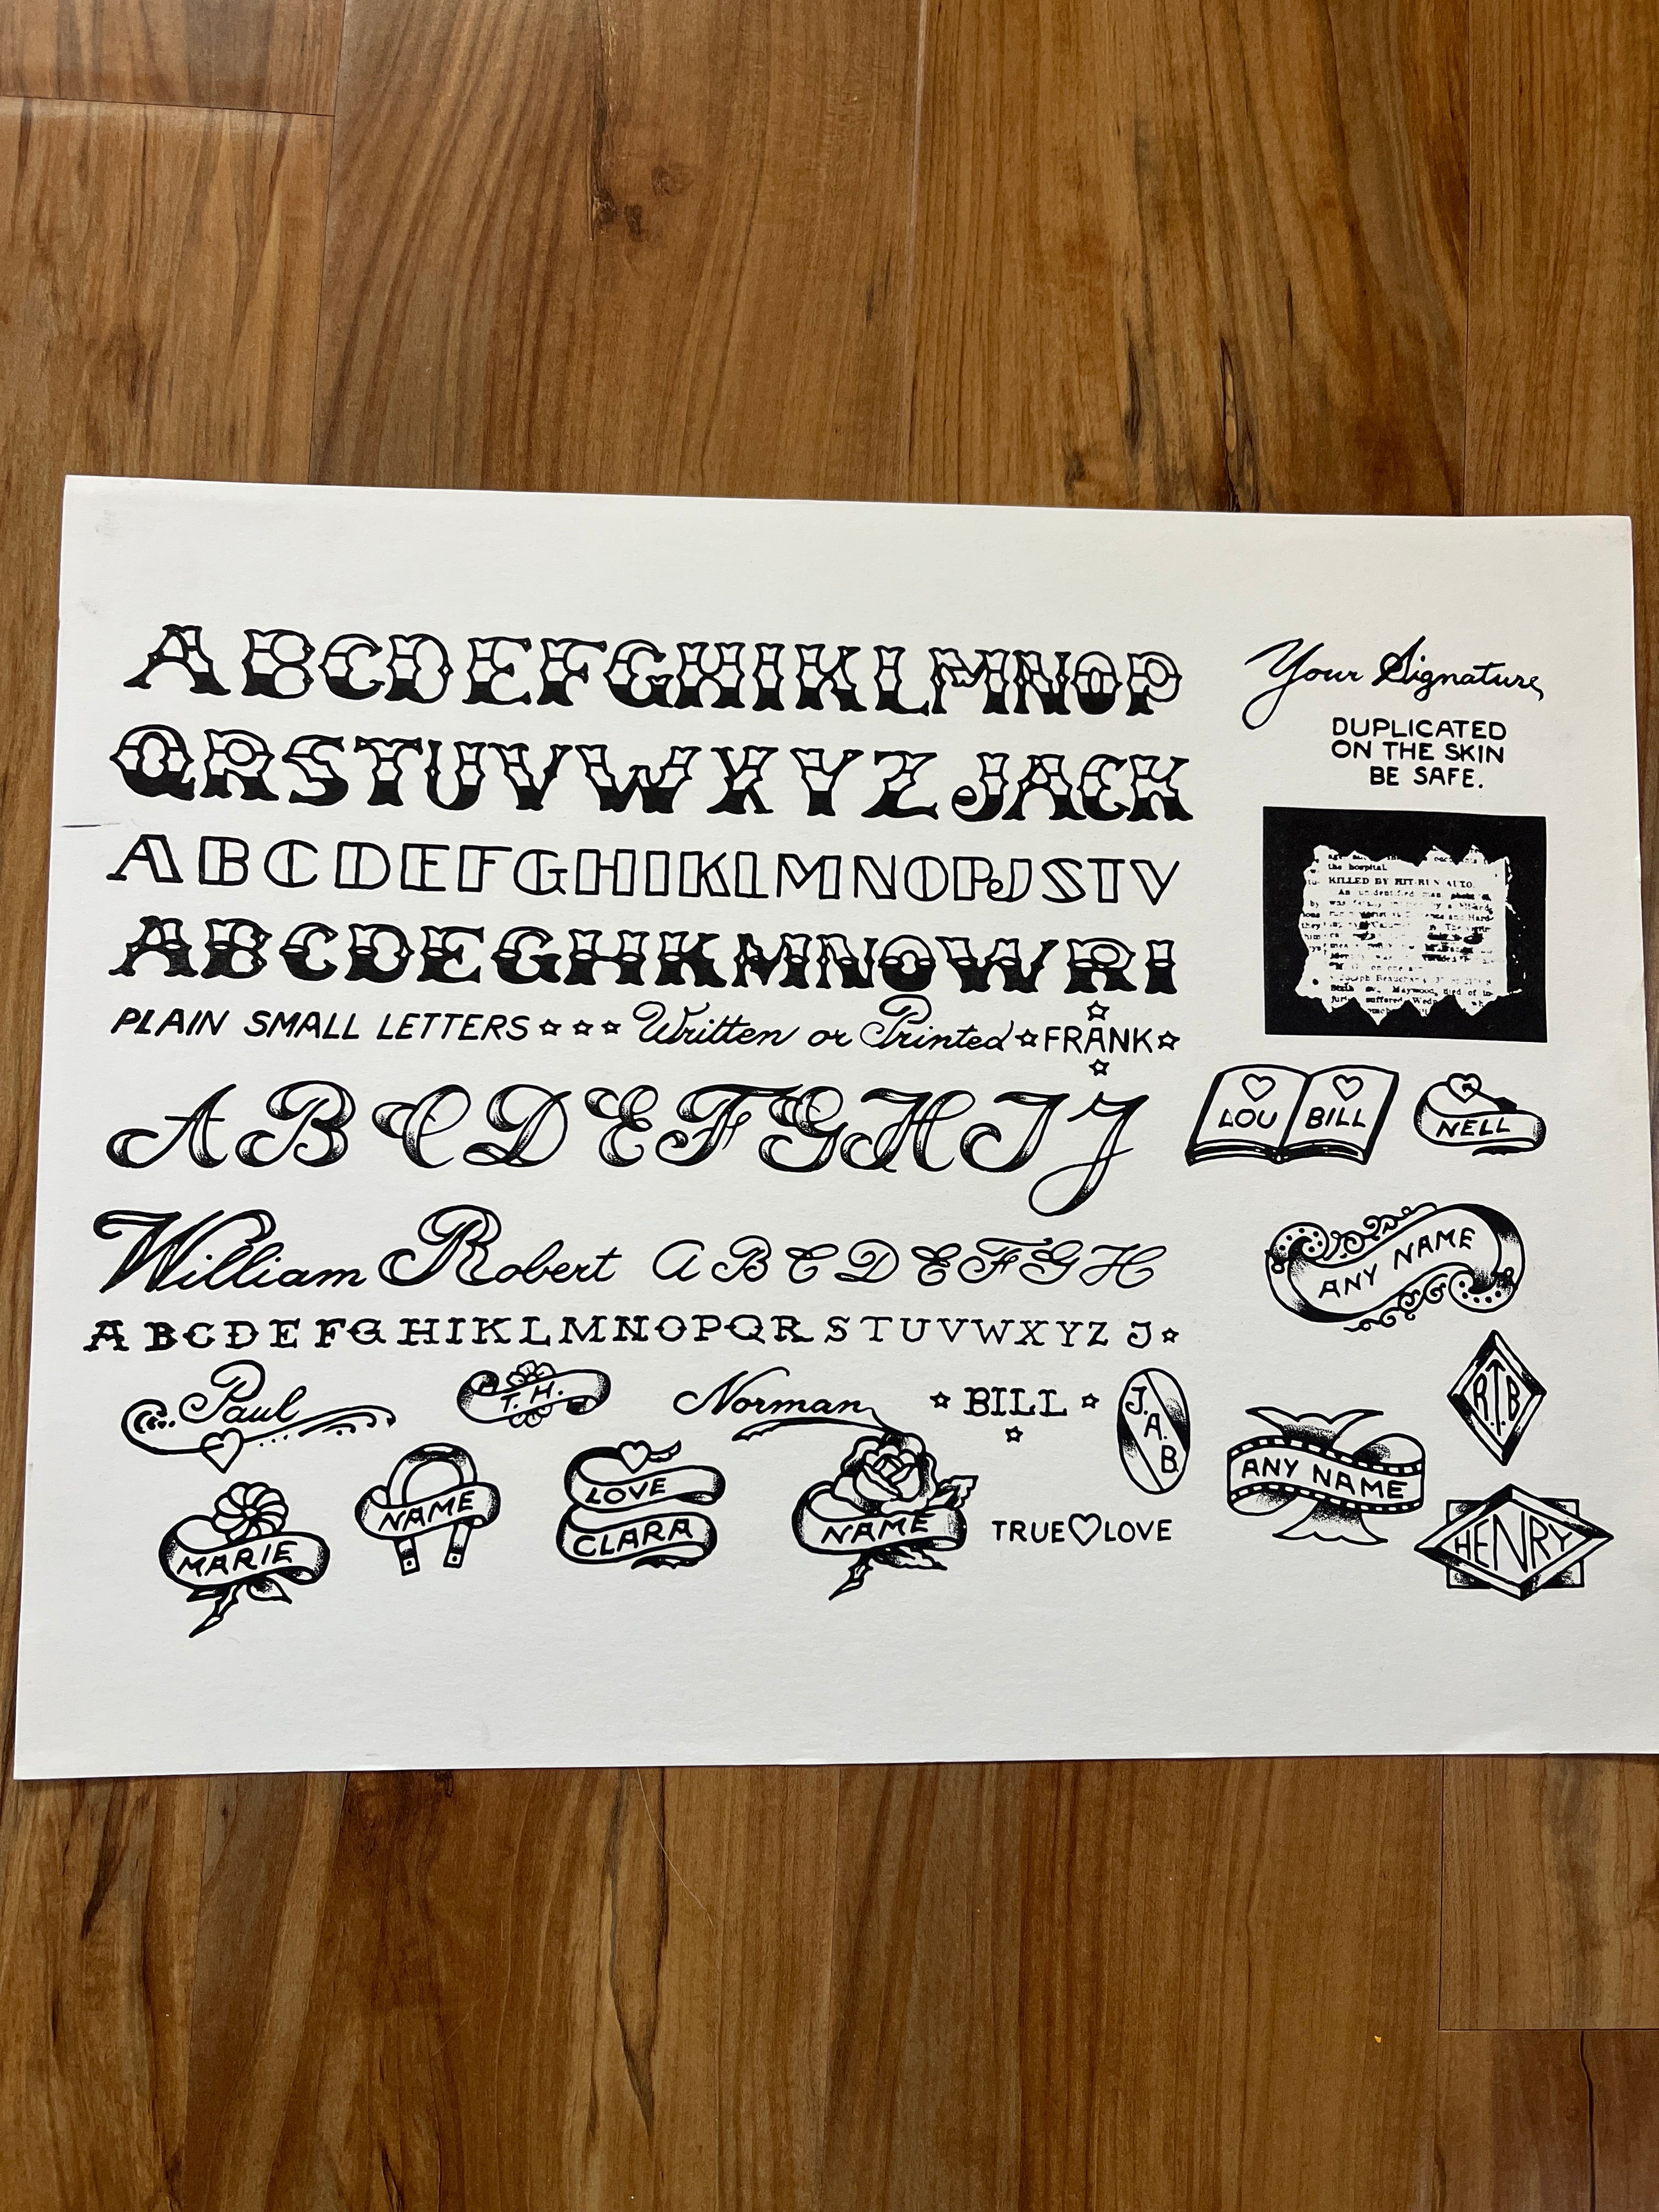 ABCDEFGHIKLMNOP
QRSTUVWXYZ JACK
ABCDEFGHIKLMNOPJSTV
ABCDEGHKMNOWRI
PLAIN SMALL LETTERS Written or Printed FRANK
ABCDEFGHIJ
William Robert ABCDEFGH
ABCDEFGHIKLMNOPQRSTUVWXYZ J
Paul
T. H.
Norman
BILL
J.A.B.
MARIE
NAME
LOVE
CLARA
NAME
TRUE LOVE
Your Signature
DUPLICATED
ON THE SKIN
BE SAFE.
the hospital.
KILLED BY HIT-RUN AUTO.
An unidentified man
Joseph Beauchamp
Maywood, died of in-
suffered Wed
LOU BILL
NELL
ANY NAME
R.T.B
ANY NAME
HENRY